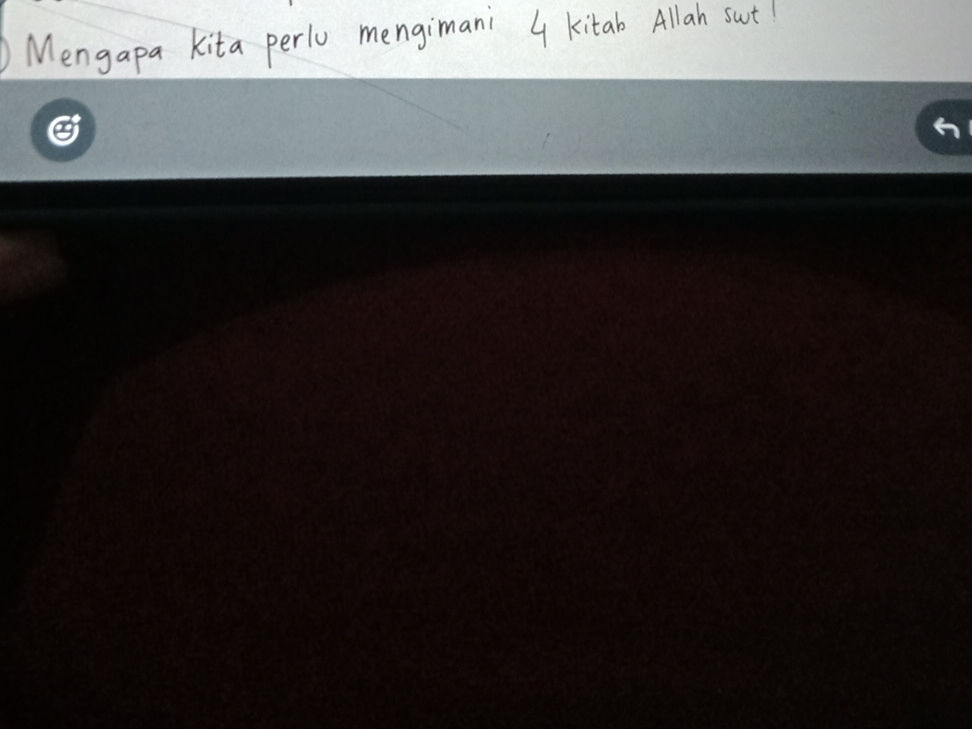 ) Mengapa kita perlu mengimani 4 kitab Allah swt!